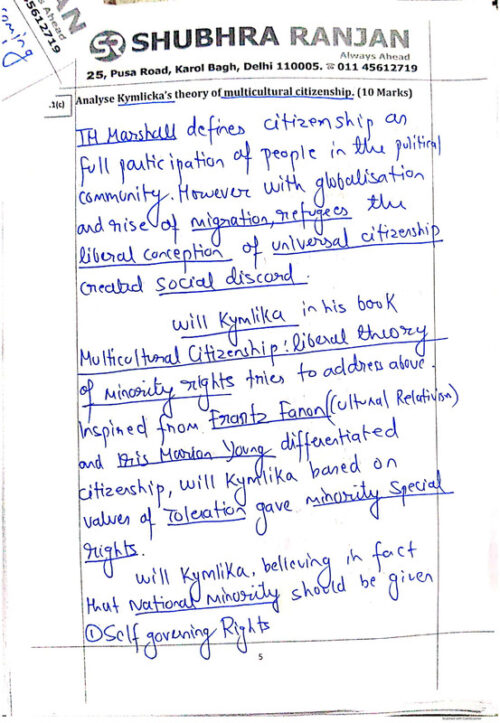 coming
AN
Ahead
45612719
SR SHUBHRA RANJAN
Always Ahead
25, Pusa Road, Karol Bagh, Delhi 110005. ☎ 011 45612719
.1(c) Analyse Kymlicka's theory of multicultural citizenship. (10 Marks)
TH Marshall defines citizenship as
full participation of people in the political
community. However with globalisation
and rise of migration, refugees the
liberal conception of universal citizenship
created social discord.
Will Kymlika in his book
Multicultural Citizenship: liberal theory
of minority rights tries to address above.
Inspired from Frantz Fanon (Cultural Relativism)
and Iris Marian Young differentiated
citizenship, Will Kymlika based on
values of Toleration gave minority special
rights.
Will Kymlika, believing in fact
that National minority should be given
① Self governing Rights
5